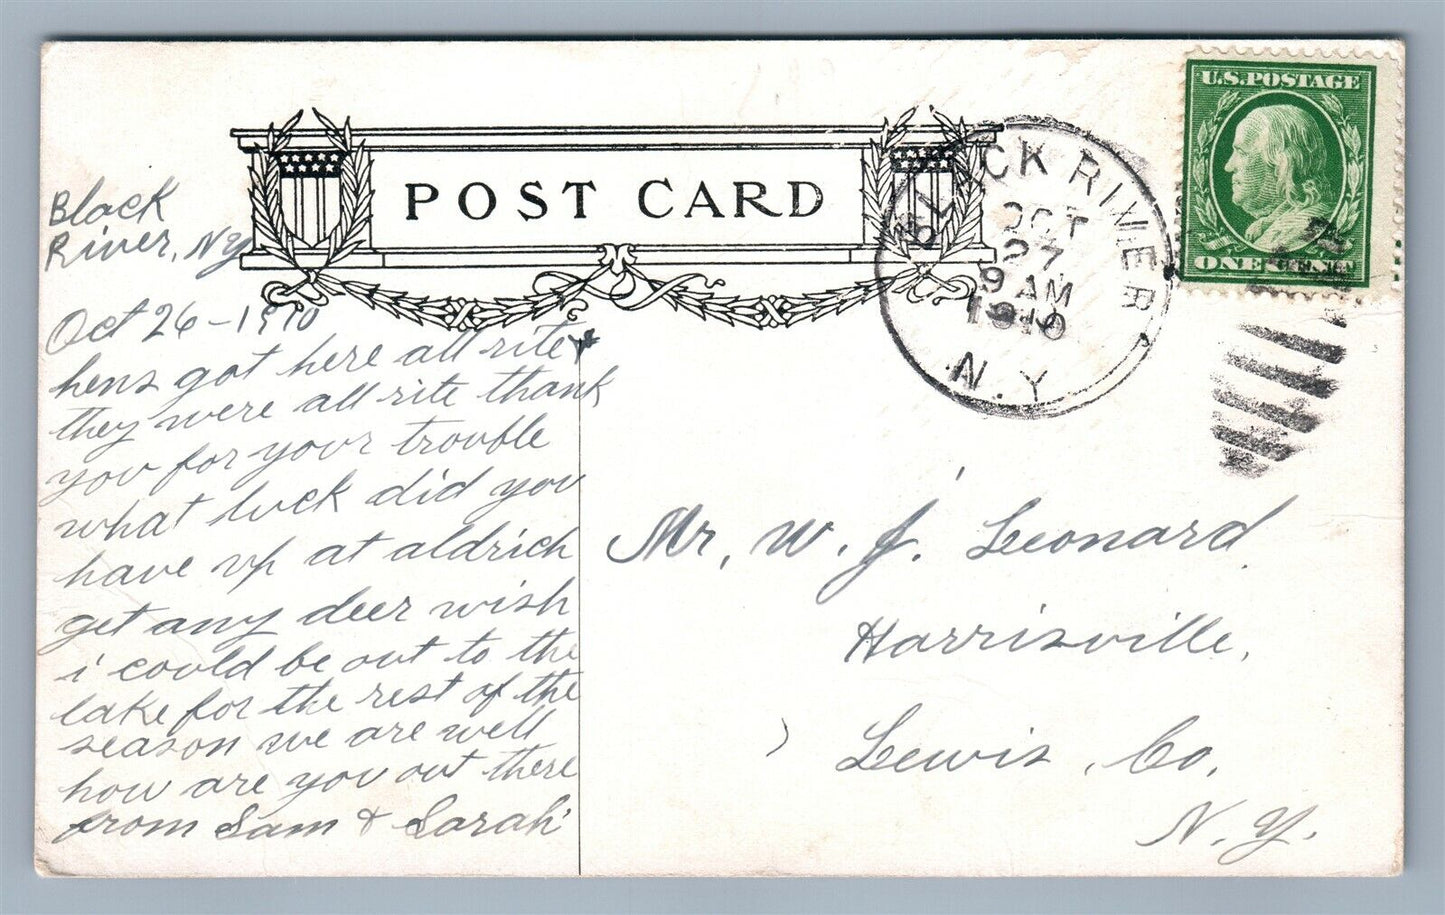 POST CARD
BLACK RIVER
OCT
27
9 AM
1910
N.Y.
U.S. POSTAGE
ONE CENT
Black
River, NY
Oct 26 - 1910
hens got here all rite &
they were all rite thank
you for your trouble
what luck did you
have up at aldrich
get any deer wish
i could be out to the
lake for the rest of the
season we are well
how are you out there
from Sam & Sarah
Mr. W. J. Leonard
Harrisville,
Lewis, Co,
N. Y.